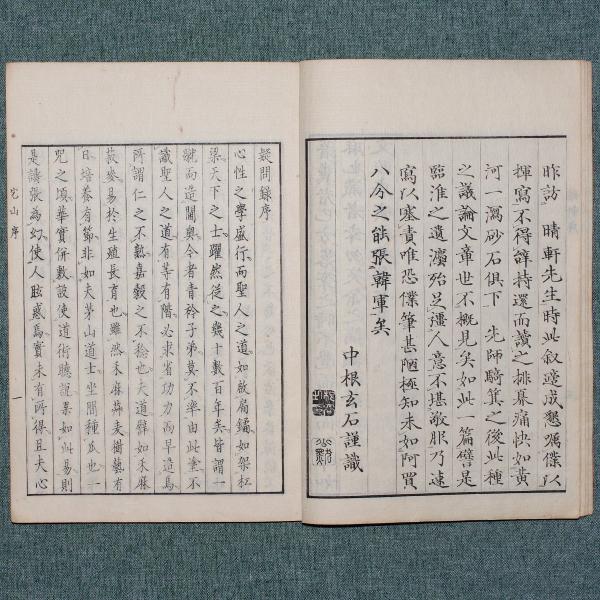 昨訪　晴軒先生時此叙適成懇嘱僕以
揮寫不得辞持還而讀之排奡痛快如黄
河一瀉砂石倶下　先師騎箕之後此種
之議論文章世不概見矣如此一篇譬是
臨淮之遺濱殆足彊人意不堪敬服乃速
寫以塞責唯恐僕筆甚陋極知未如阿買
八分之能張韓軍矣
中根玄石謹識
疑問録序
心性之學盛行而聖人之道如啟扃鐍如架杠
梁天下之士躍然從之幾十數百年矣皆謂一
蹴而造閫奥今者青衿子弟莫不率由此塗不
識聖人之道有等有階必求省功力而早造焉
所謂仁之不熟嘉穀之不稔也夫道譬如禾麻
菽麥易於生殖長育也雖然禾麻菽麦樹藝有
日培養有節非如夫茅山道士坐間種瓜也一
咒之頃華實併數設使道術聴説果如此易則
是譸張為幻使人眩惑焉實未有所得且夫心
宅山序
一